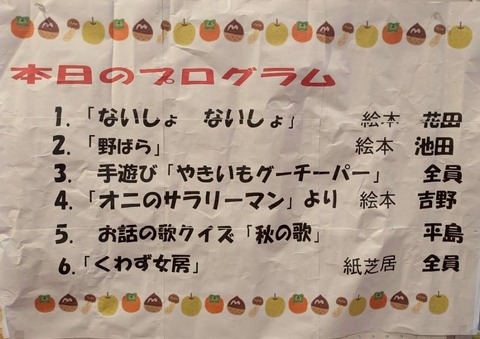 本日のプログラム
1. 「ないしょ ないしょ」 絵本 花田
2. 「野ばら」 絵本 池田
3. 手遊び「やきいもグーチーパー」 全員
4. 「オニのサラリーマン」より 絵本 吉野
5. お話の歌クイズ「秋の歌」 平島
6. 「くわず女房」 紙芝居 全員